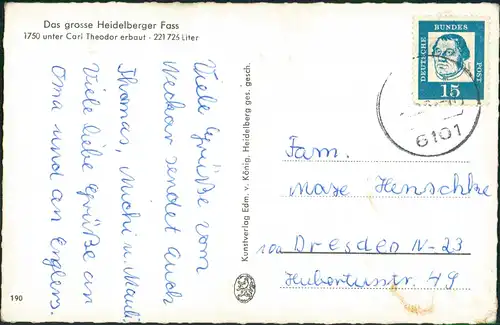 Das grosse Heidelberger Fass
1750 unter Carl Theodor erbaut - 221 725 Liter
Viele Grüße vom
Neckar sendet Euch
Thomas, Michi u. Mauli.
Viele liebe Grüße an
Oma und an Englers.
Kunstverlag Edm. v. König, Heidelberg ges. gesch.
190
DEUTSCHE
BUNDES
POST
15
6101
Fam.
Maxe Henschke
10a Dresden N-23
Hubertusstr. 49